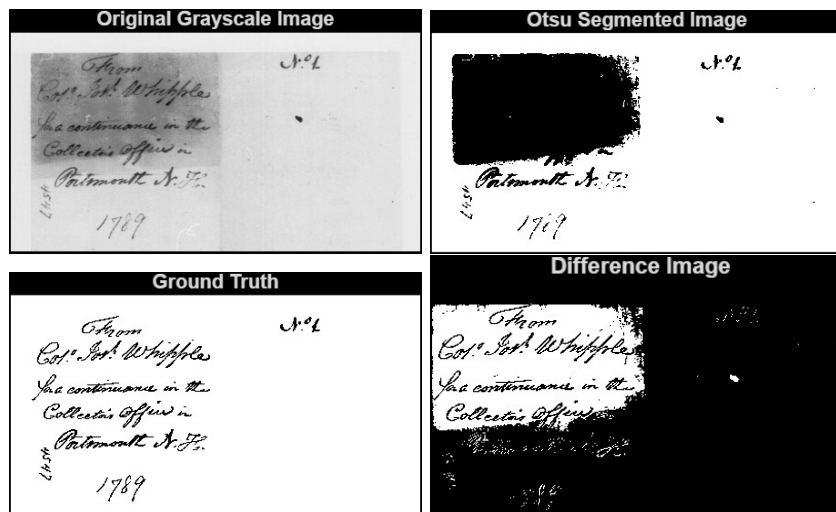 Original Grayscale Image
From
Nº 1
Colº Josh Whipple
for a continuance in the
Collectors Office in
Portsmouth N. H.
1789
Otsu Segmented Image
Nº 1
in
Portsmouth N. H.
Ground Truth
From
Nº 1
Colº Josh Whipple
for a continuance in the
Collectors Office in
Portsmouth N. H.
1789
Difference Image
From
Colº Josh Whipple
for a continuance in the
Collectors Office in